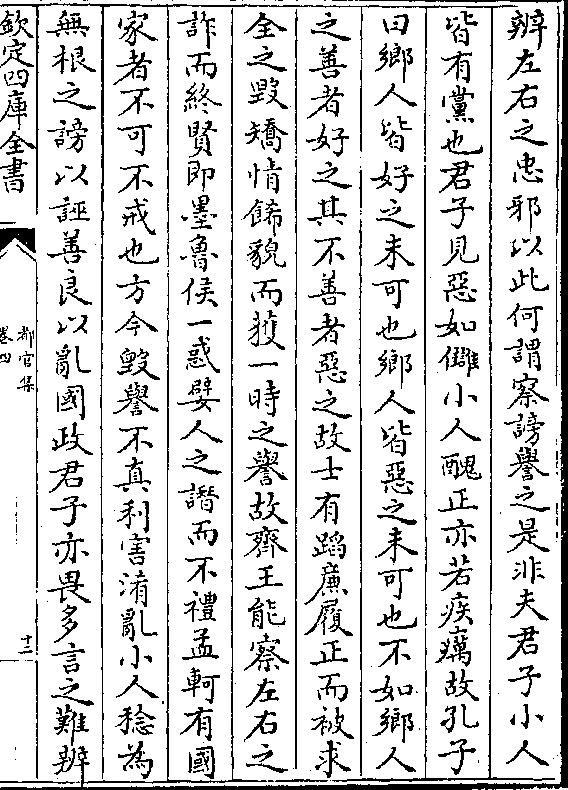 辨左右之忠邪以此何謂察謗譽之是非夫君子小人
皆有黨也君子見惡如讎小人醜正亦若疾癘故孔子
曰鄉人皆好之未可也鄉人皆惡之未可也不如鄉人
之善者好之其不善者惡之故士有蹈亷履正而被求
全之毀矯情餙貌而獲一時之譽故齊王能察左右之
詐而終賢即墨魯侯一惑嬖人之譖而不禮孟軻有國
家者不可不戒也方今毀譽不真利害淆亂小人稔為
無根之謗以誣善良以亂國政君子亦畏多言之難辨
欽定四庫全書
都官集
卷四
十二